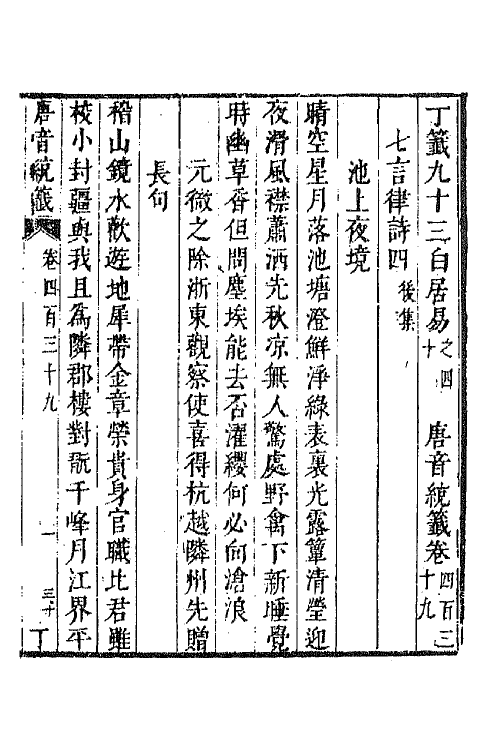 丁籤九十三白居易之四十四　唐音統籤卷四百三十九
七言律詩四後集
池上夜境
晴空星月落池塘澄鮮淨綠表裏光露簟清瑩迎
夜滑風襟蕭洒先秋凉無人驚處野禽下新睡覺
時幽草香但問塵埃能去否濯纓何必向滄浪
元微之除浙東觀察使喜得杭越隣州先贈
長句
稽山鏡水歡遊地犀帶金章榮貴身官職比君雖
校小封疆與我且為隣郡樓對翫千峰月江界平
唐音統籤　卷四百三十九　一　三十　丁